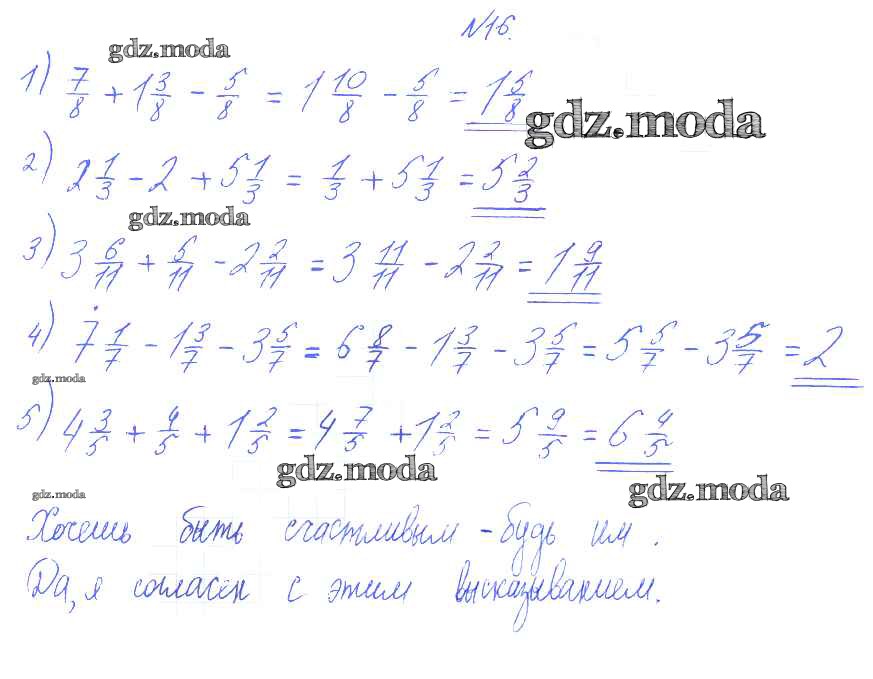 №16.
gdz.moda
1) 7/8 + 1 3/8 - 5/8 = 1 10/8 - 5/8 = 1 5/8
gdz.moda
2) 2 1/3 - 2 + 5 1/3 = 1/3 + 5 1/3 = 5 2/3
gdz.moda
3) 3 6/11 + 5/11 - 2 2/11 = 3 11/11 - 2 2/11 = 1 9/11
4) 7 1/7 - 1 3/7 - 3 5/7 = 6 8/7 - 1 3/7 - 3 5/7 = 5 5/7 - 3 5/7 = 2
gdz.moda
5) 4 3/5 + 4/5 + 1 2/5 = 4 7/5 + 1 2/5 = 5 9/5 = 6 4/5
gdz.moda
gdz.moda
gdz.moda
Хочешь быть счастливым - будь им.
Да, я согласен с этим высказыванием.